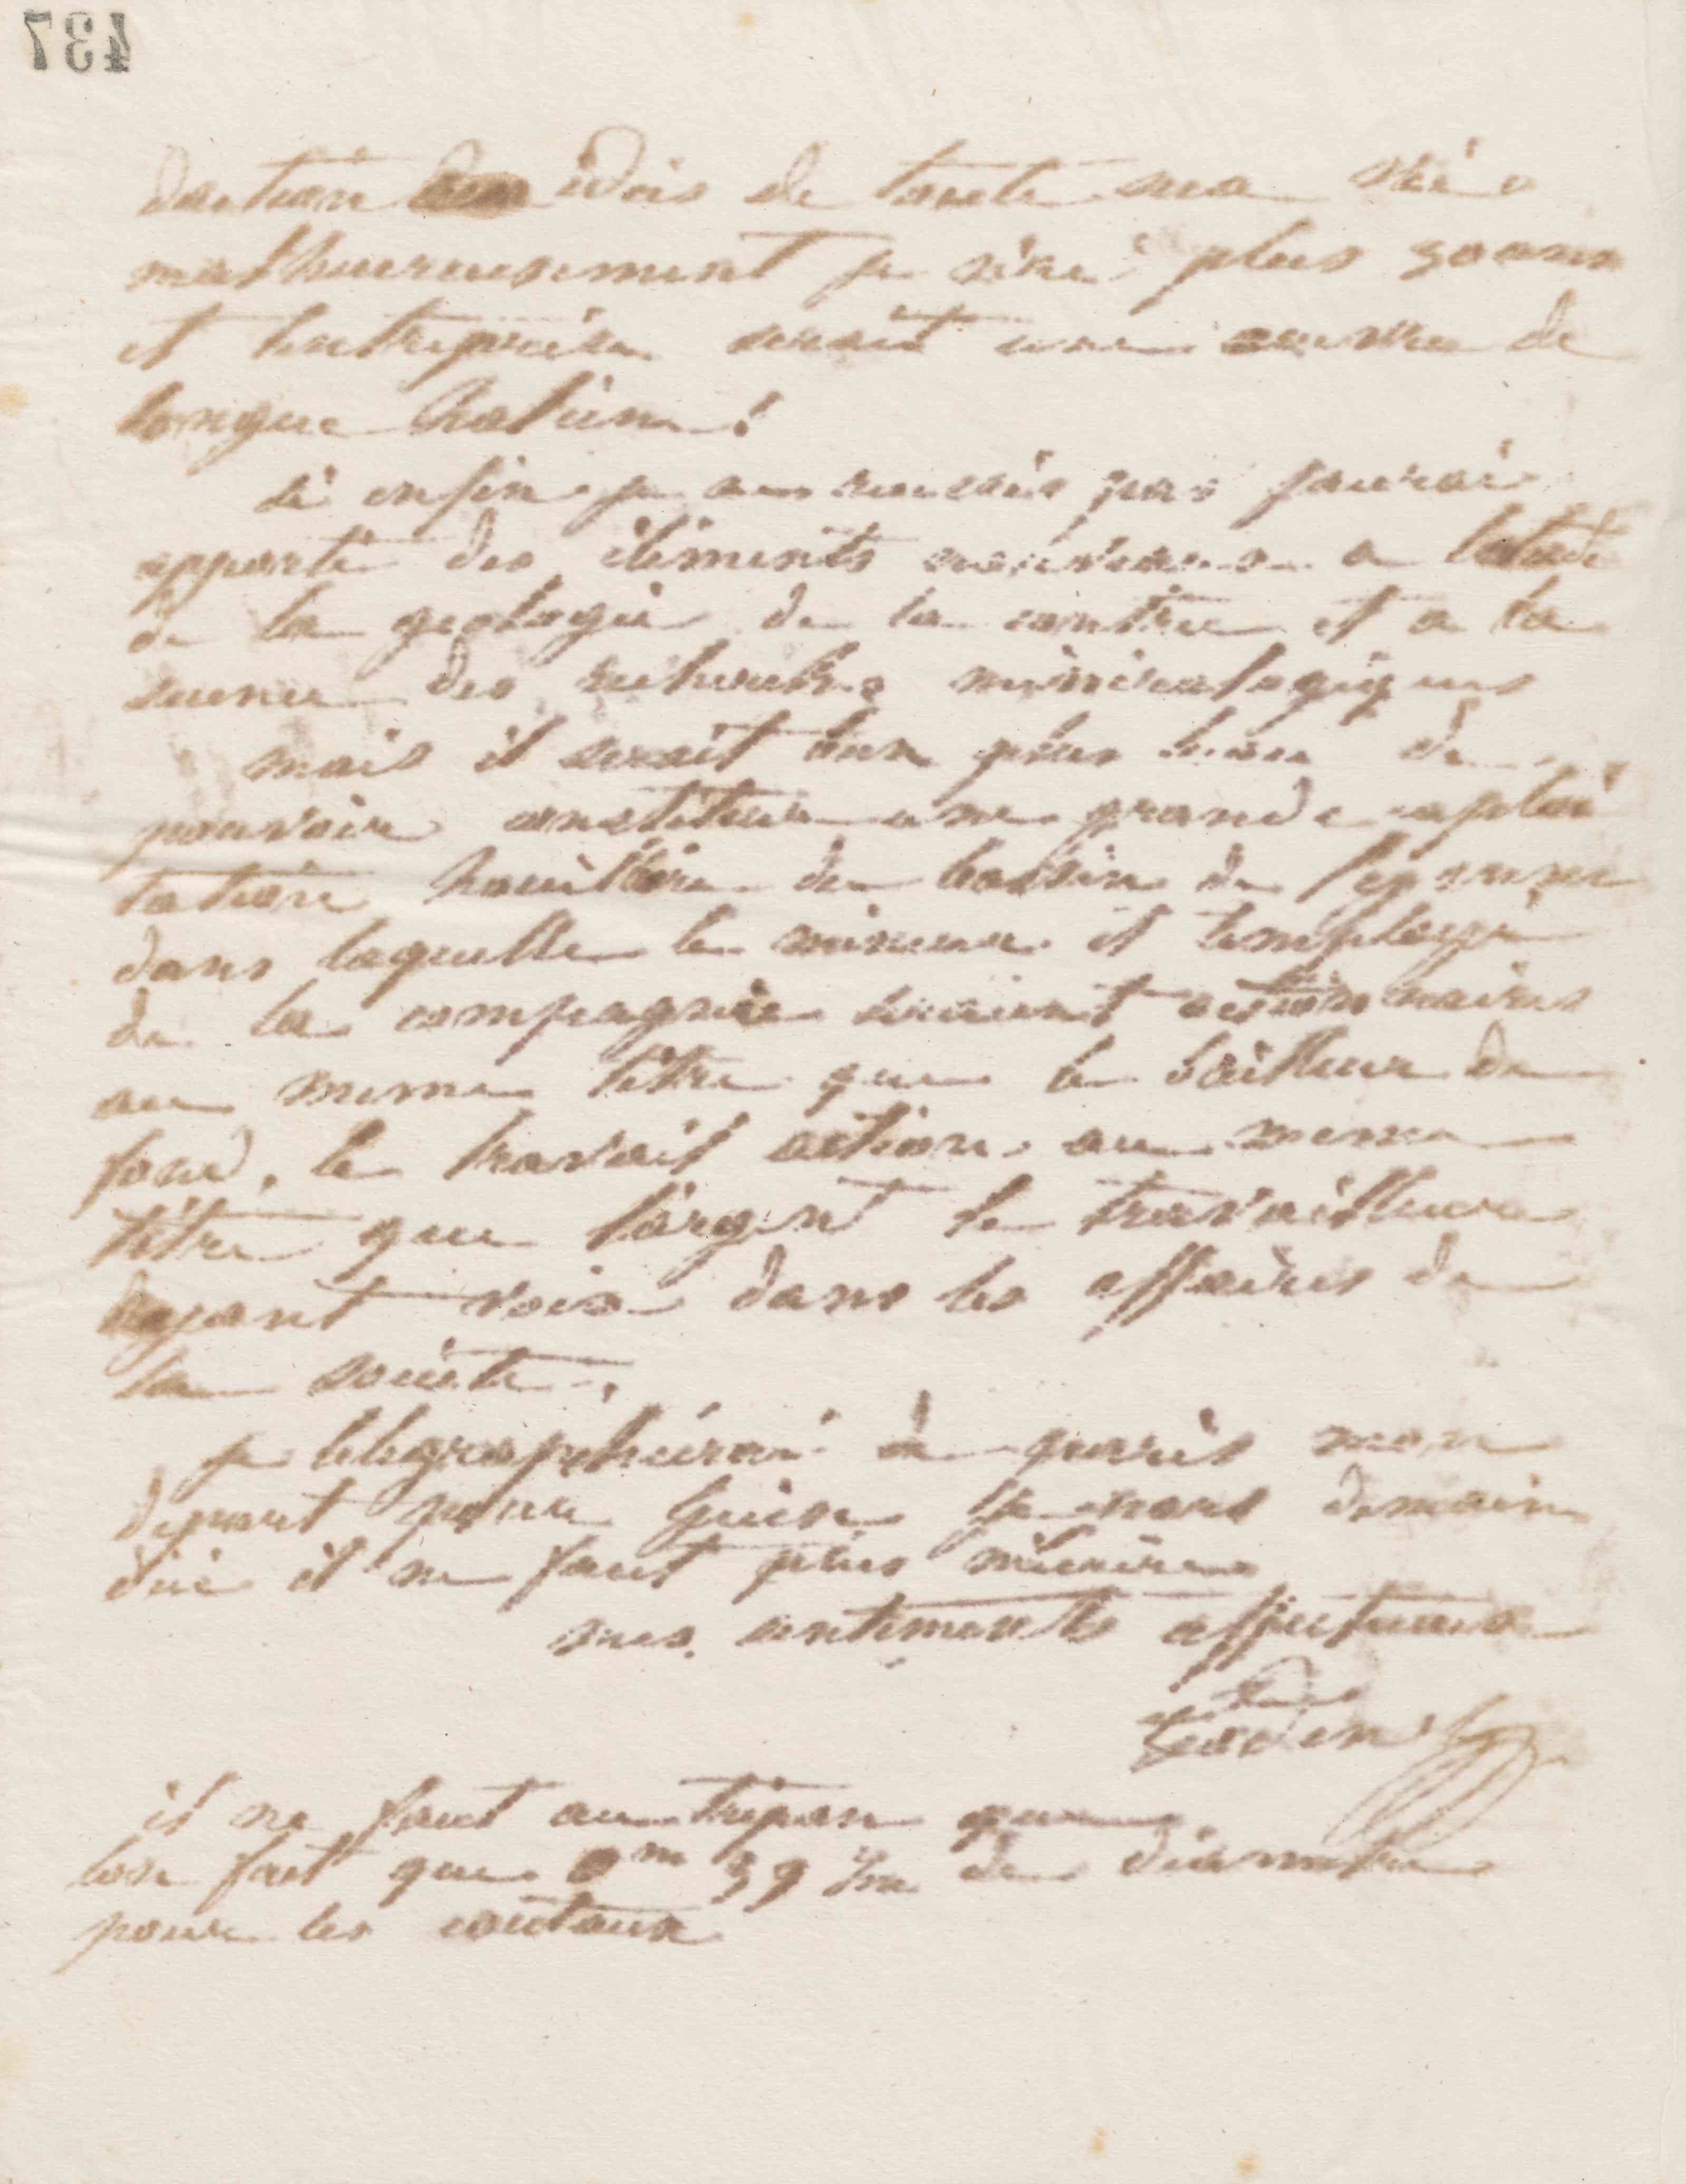 437
daction des idées de toute ma vie
malheureusement je n'ai plus 30 ans
et l'entreprise serait une œuvre de
longue haleine!
si enfin je ne reussis pas j'aurai
apporté des éléments nouveaux a l'etude
de la geologie de la contrée et a la
science des recherches minéralogiques
mais il serait bien plus beau de
pouvoir constituer une grande exploi
tation houillère du bassin de
dans laquelle le mineur et l'employé
de la compagnie seraient actionnaires
au meme titre que le bailleur de
fond, le travail action au meme
titre que l'argent le travailleur
ayant voix dans les affaires de
la société.
je telegraphierai de paris mon
depart pour Guise
il ne faut plus m'écrire
mes sentiments affectueux
Godin
il ne faut au trepan que
bon fait que 0m 39 c/m de diametre
pour les couteaux